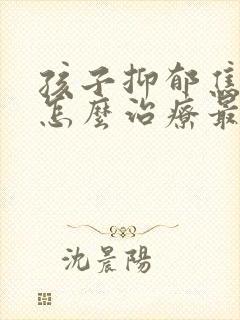 孩子抑郁焦
怎麼治療最
沈晨陽